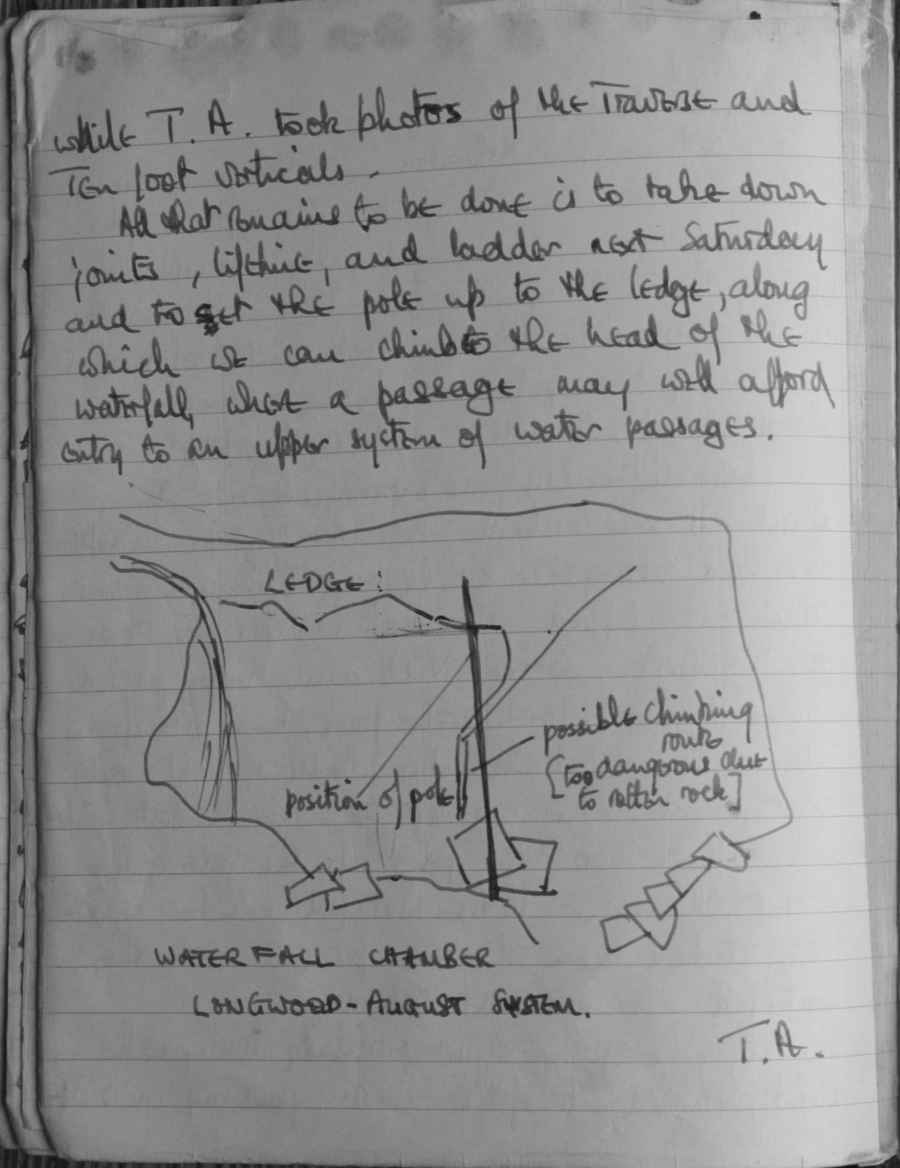 while T.A. took photos of the Traverse and
Ten foot verticals.
All that remains to be done is to take down
joints, lifeline, and ladder next Saturday
and to set the pole up to the ledge, along
which we can climb to the head of the
waterfall, where a passage may well afford
entry to an upper system of water passages.
LEDGE:
possible climbing
route
[too dangerous due
to rotten rock]
position of pole
WATERFALL CHAMBER
LONGWOOD-AUGUST SYSTEM.
T.A.